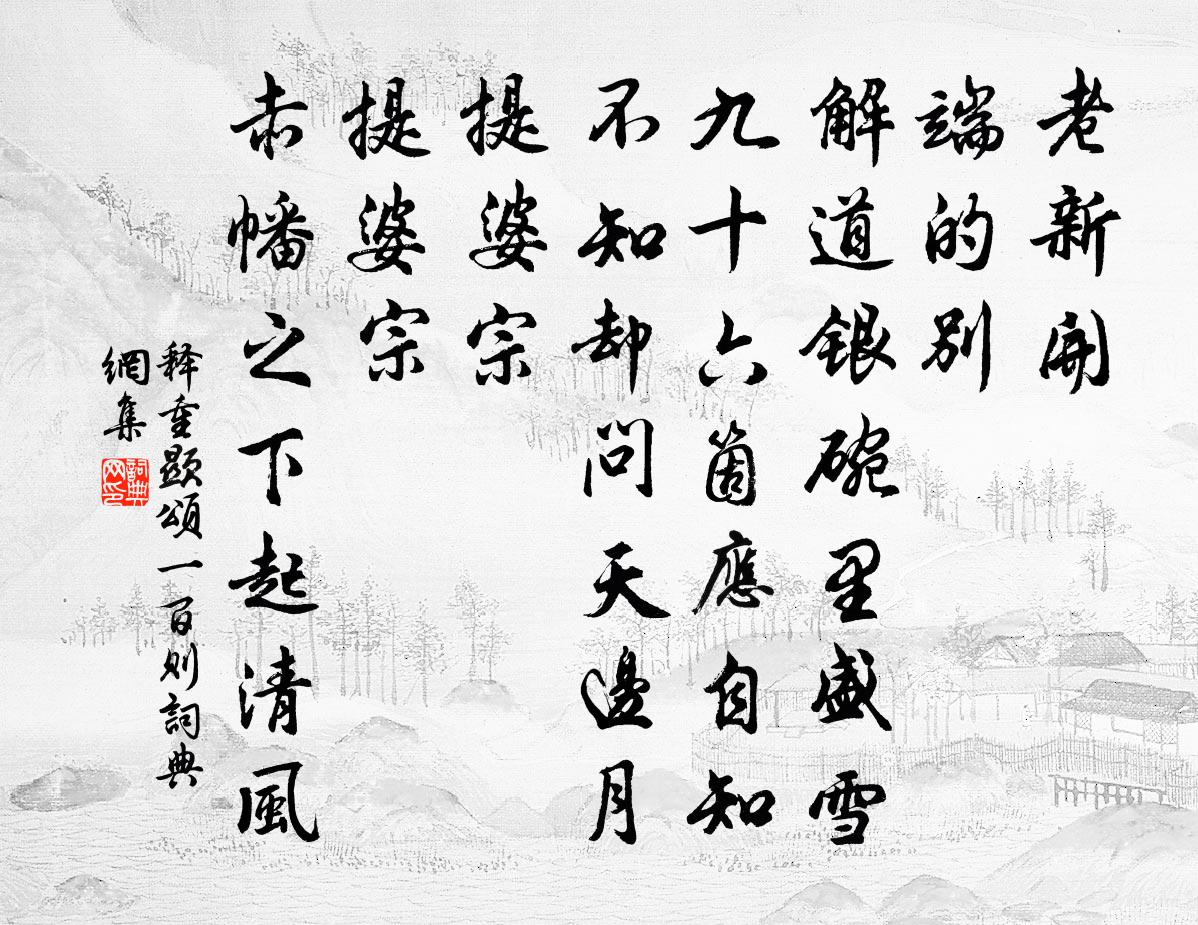 老新開
端的别
解道銀碗里盛雪
九十六箇應自知
不知却問天邊月
提婆宗
提婆宗
赤幡之下起清風
释重顯頌一百則詞典
網集
詞典
网印